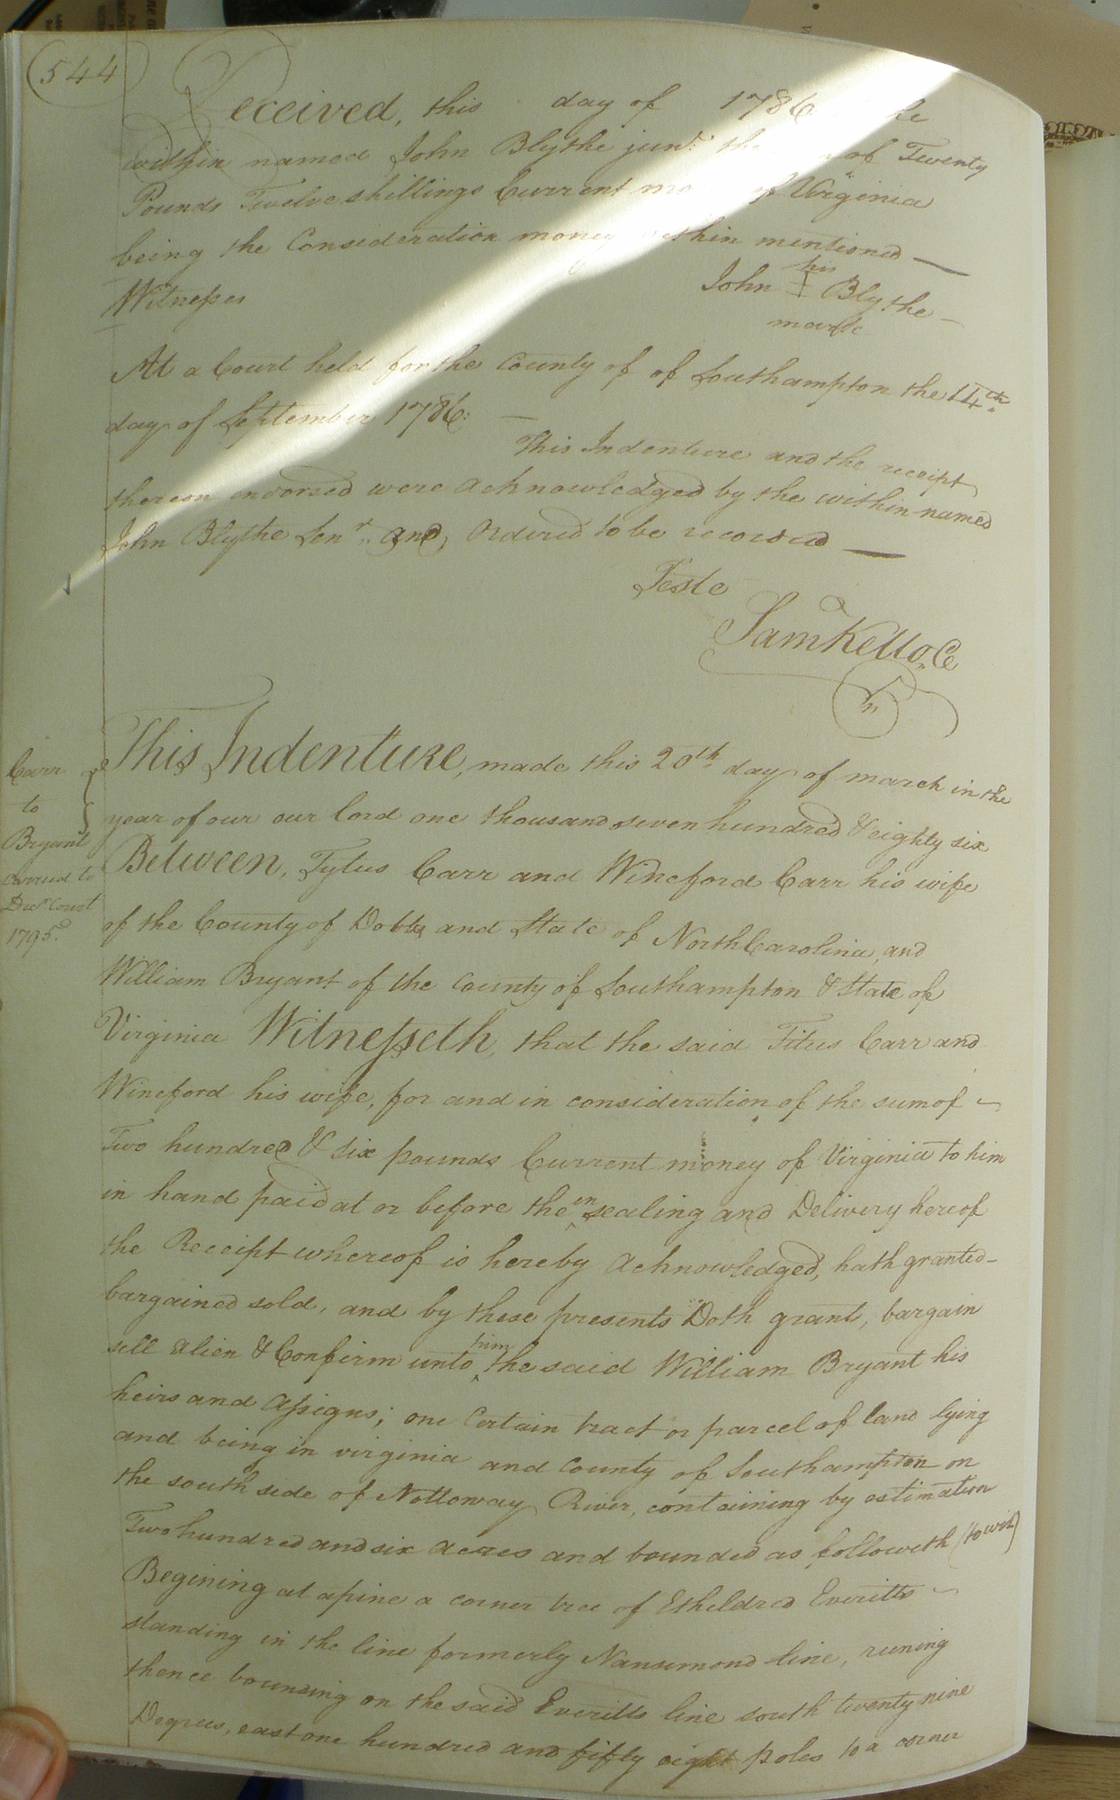 544
Received, this day of 1786 he
within named John Blythe junr. the of Twenty
Pounds Twelve shillings Current mo of Virginia
being the Consideration money within mentioned —
his
Witnesses John I Blythe —
mark
At a Court held for the County of of Southampton the 14th.
day of September 1786: —
This Indenture and the receipt
thereon endorsed were acknowledged by the within named
John Blythe Senr. and, Ordered to be recorded —
Teste
Saml Kello, C
Carr
to
Bryant
Dec Court
1795.
This Indenture, made this 20th. day of march in the
year of our our lord one thousand seven hundred & eighty six
Between, Tytus Carr and Wineford Carr his wife
of the County of Dobbs and State of North Carolina, and
William Bryant of the County of Southampton & State of
Virginia Witnesseth, that the said Titus Carr and
Wineford his wife, for and in consideration of the sum of
Two hundred & six pounds Current money of Virginia to him
in hand paid at or before the ensealing and Delivery hereof
the Receipt whereof is hereby acknowledged, hath granted
bargained sold, and by these presents Doth grant, bargain
sell alien & Confirm unto him the said William Bryant his
heirs and assigns; one Certain tract or parcel of land lying
and being in virginia and County of Southampton on
the south side of Nottoway River, containing by estimation
Two hundred and six acres and bounded as followeth (to wit)
Begining at a pine a corner tree of Etheldred Everitts
standing in the line formerly Nansemond line, runing
thence bounding on the said Everitts line south twenty nine
Degrees, east one hundred and fifty eight poles to a corner